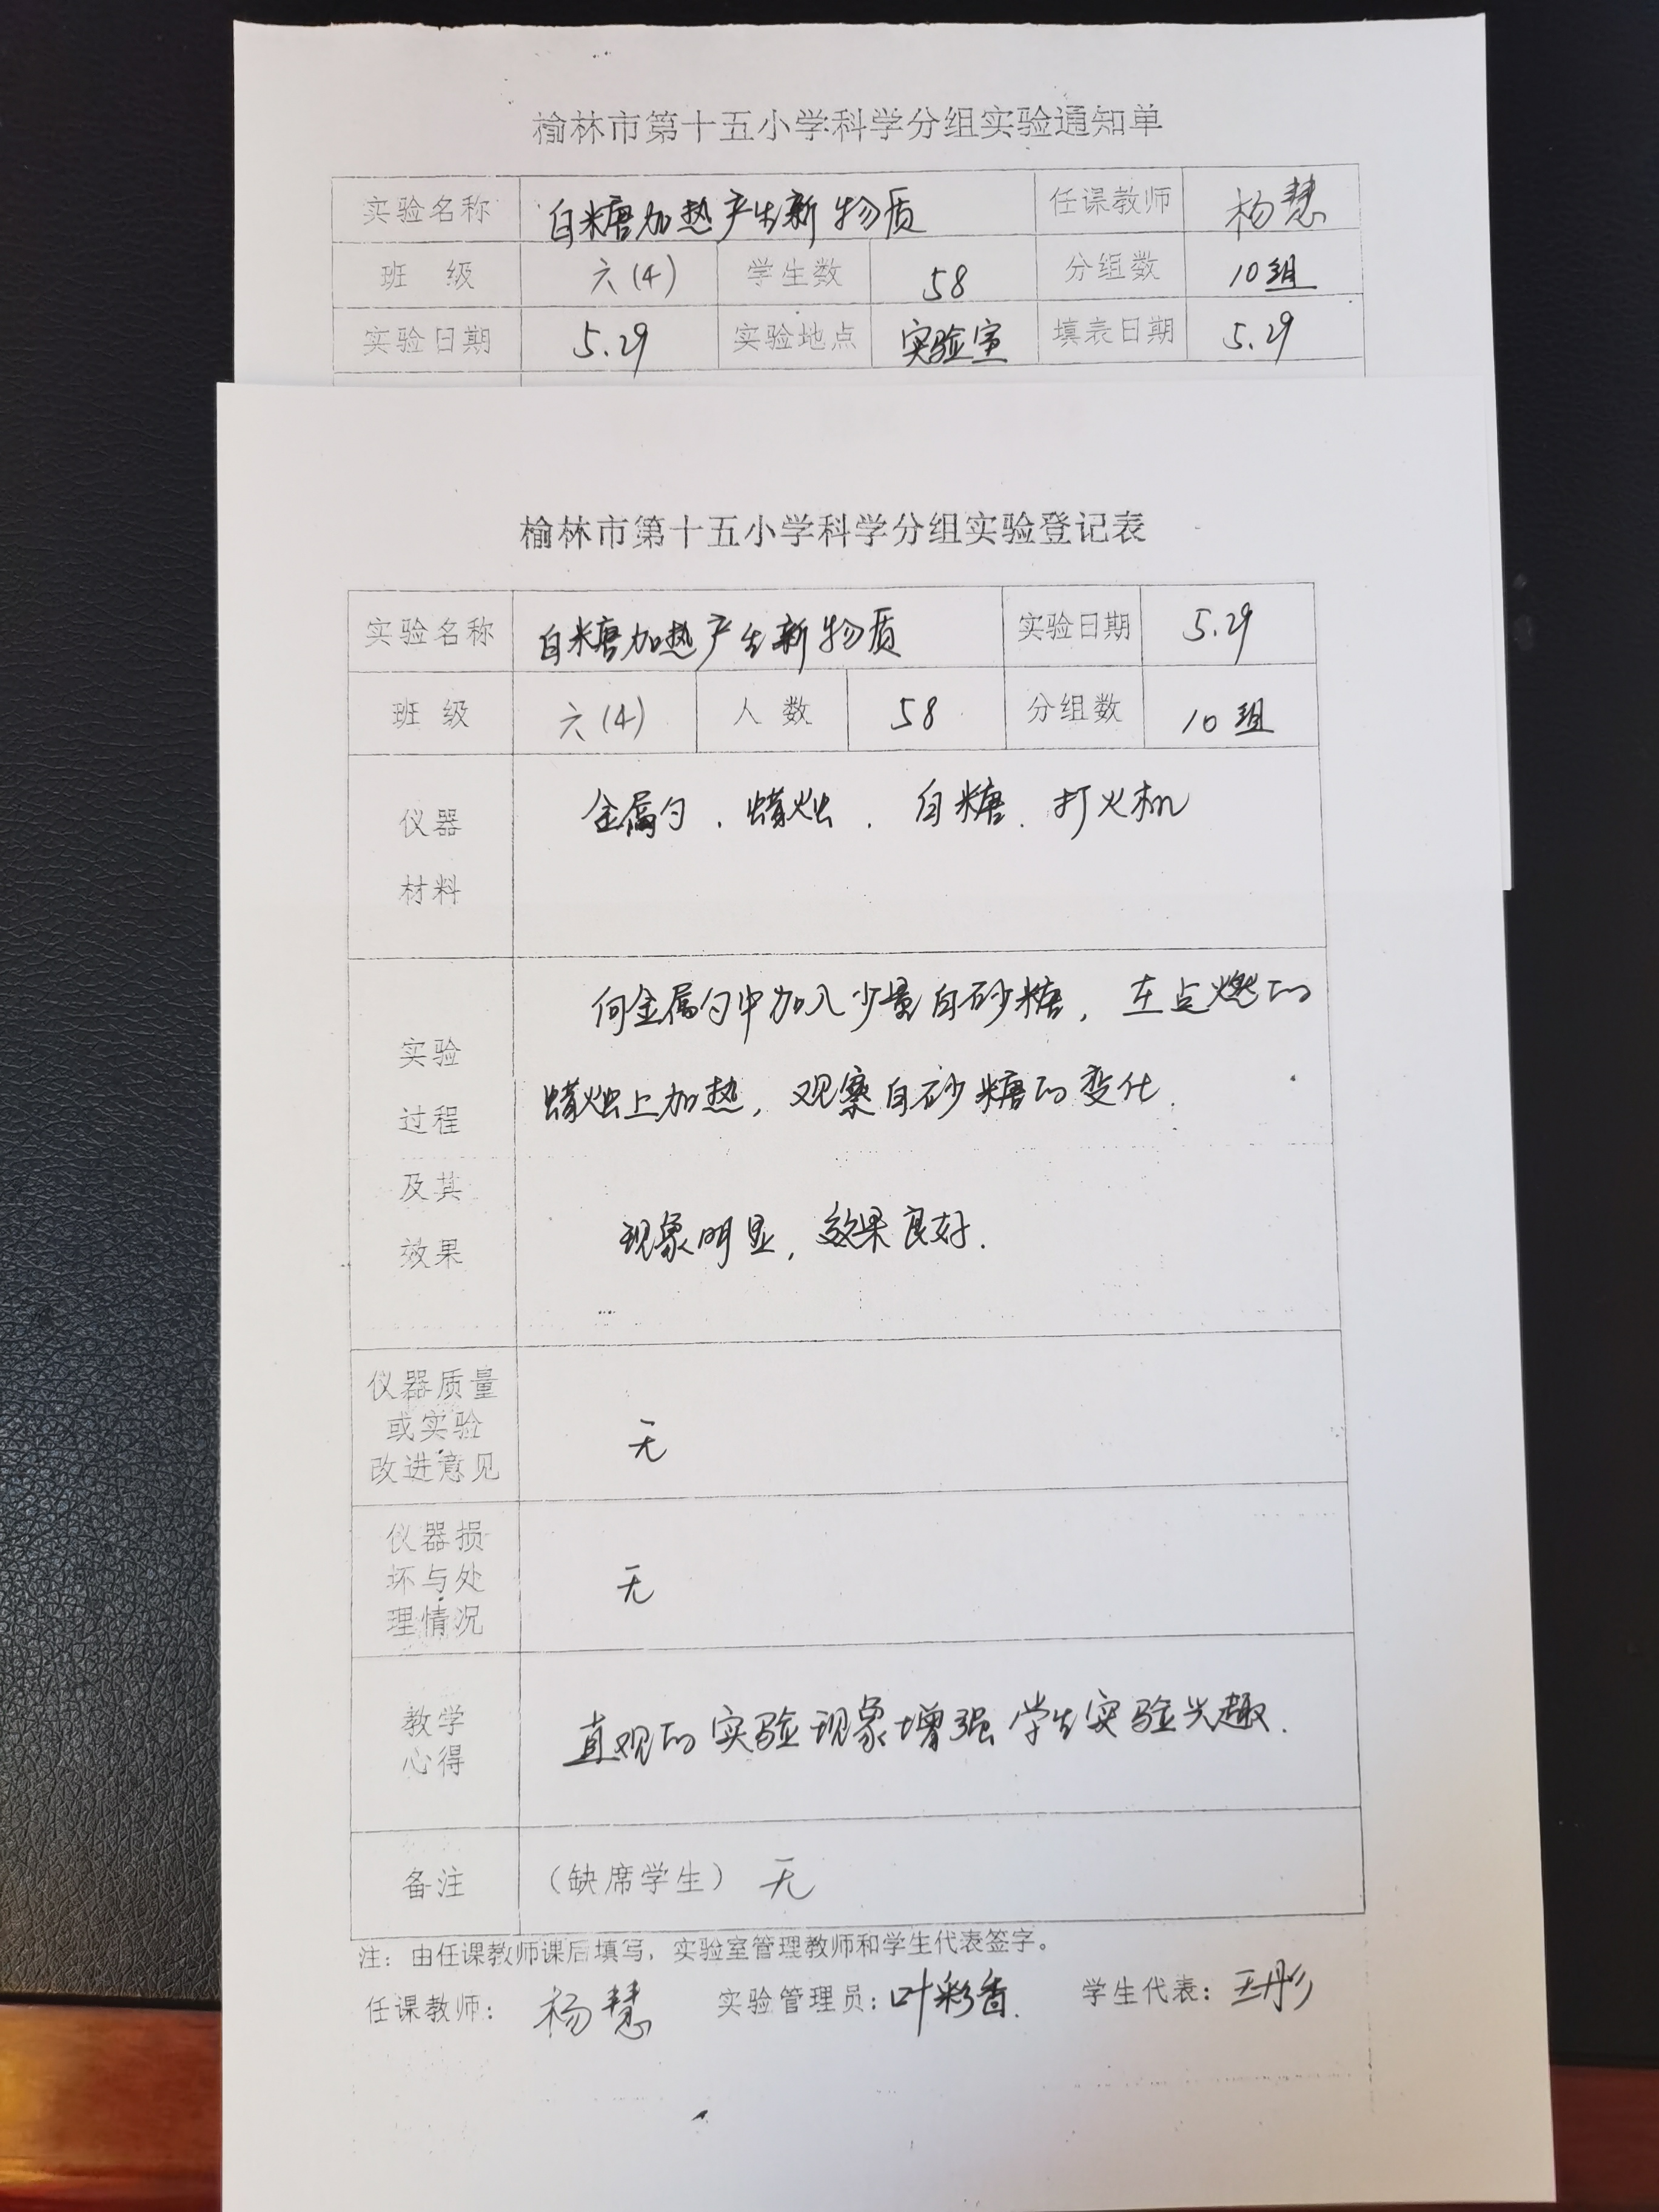 榆林市第十五小学科学分组实验通知单
实验名称 白糖加热产生新物质 任课教师 杨慧
班 级 六(4) 学生数 58 分组数 10组
实验日期 5.29 实验地点 实验室 填表日期 5.29
榆林市第十五小学科学分组实验登记表
实验名称 白糖加热产生新物质 实验日期 5.29
班 级 六(4) 人 数 58 分组数 10组
仪器
材料
金属勺、蜡烛、白糖、打火机
实验
过程
及其
效果
向金属勺中加入少量白砂糖,在点燃的
蜡烛上加热,观察白砂糖的变化.
现象明显,效果良好.
仪器质量
或实验
改进意见
无
仪器损
坏与处
理情况
无
教学
心得
直观的实验现象增强学生实验兴趣.
备注 (缺席学生) 无
注:由任课教师课后填写,实验室管理教师和学生代表签字。
任课教师: 杨慧 实验管理员:叶彩香. 学生代表:王彤